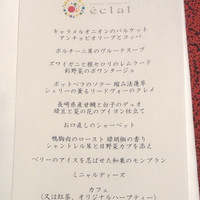 éclat
キャラメルオニオンのバルケット
アンチョビオリーブとフッパ
ポルチーニ茸のヴルーテスープ
ズワイガニと根セロリのレムラード
彩野菜のボワンタージュ
ポットベラのソテー 縮み法蓮草
シェリーの薫るリードヴォーのクレメ
長崎県産甘鯛と白子のデュオ
緑豆と菜の花のアイヨン仕立て
お口直しのシャーベット
鴨胸肉のロースト 緑胡椒の香り
シャントレル茸と日野菜カブを添え
ベリーのアイスを忍ばせた和栗のモンブラン
ミニャルディーズ
カフェ
(又は紅茶、オリジナルハーブティー)